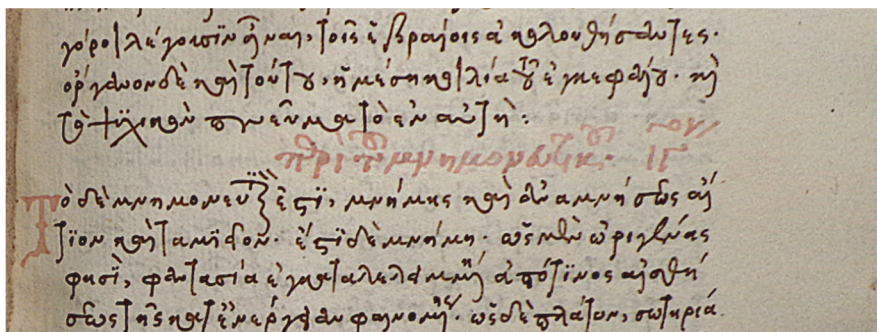 γόροι λέγουσιν εἶναι, τοῖς ἑβραίοις ἀκολουθήσαντες·
ὄργανον δὲ καὶ τούτου, ἡ μέση κοιλία τοῦ ἐγκεφάλου· καὶ
τὸ ψϋχικὸν πνεῦμα τὸ ἐν αὐτῆ:
περὶ τοῦ μνημονευτικοῦ· ιγ
Τὸ δὲ μνημονευτικὸν ἐστϊ, μνήμης καὶ ἀναμνήσεως αἴ
τϊον καὶ ταμϊεῖον· ἔστϊ δὲ μνήμη· ὡς μὲν ὠριγένης
φησϊ, φαντασία ἐγκαταλελειμμένη ἀπό τϊνος αἰσθή
σεως τῆς κατ' ἐνέργειαν φαινομένης· ὡς δὲ πλάτων, σωτηρία